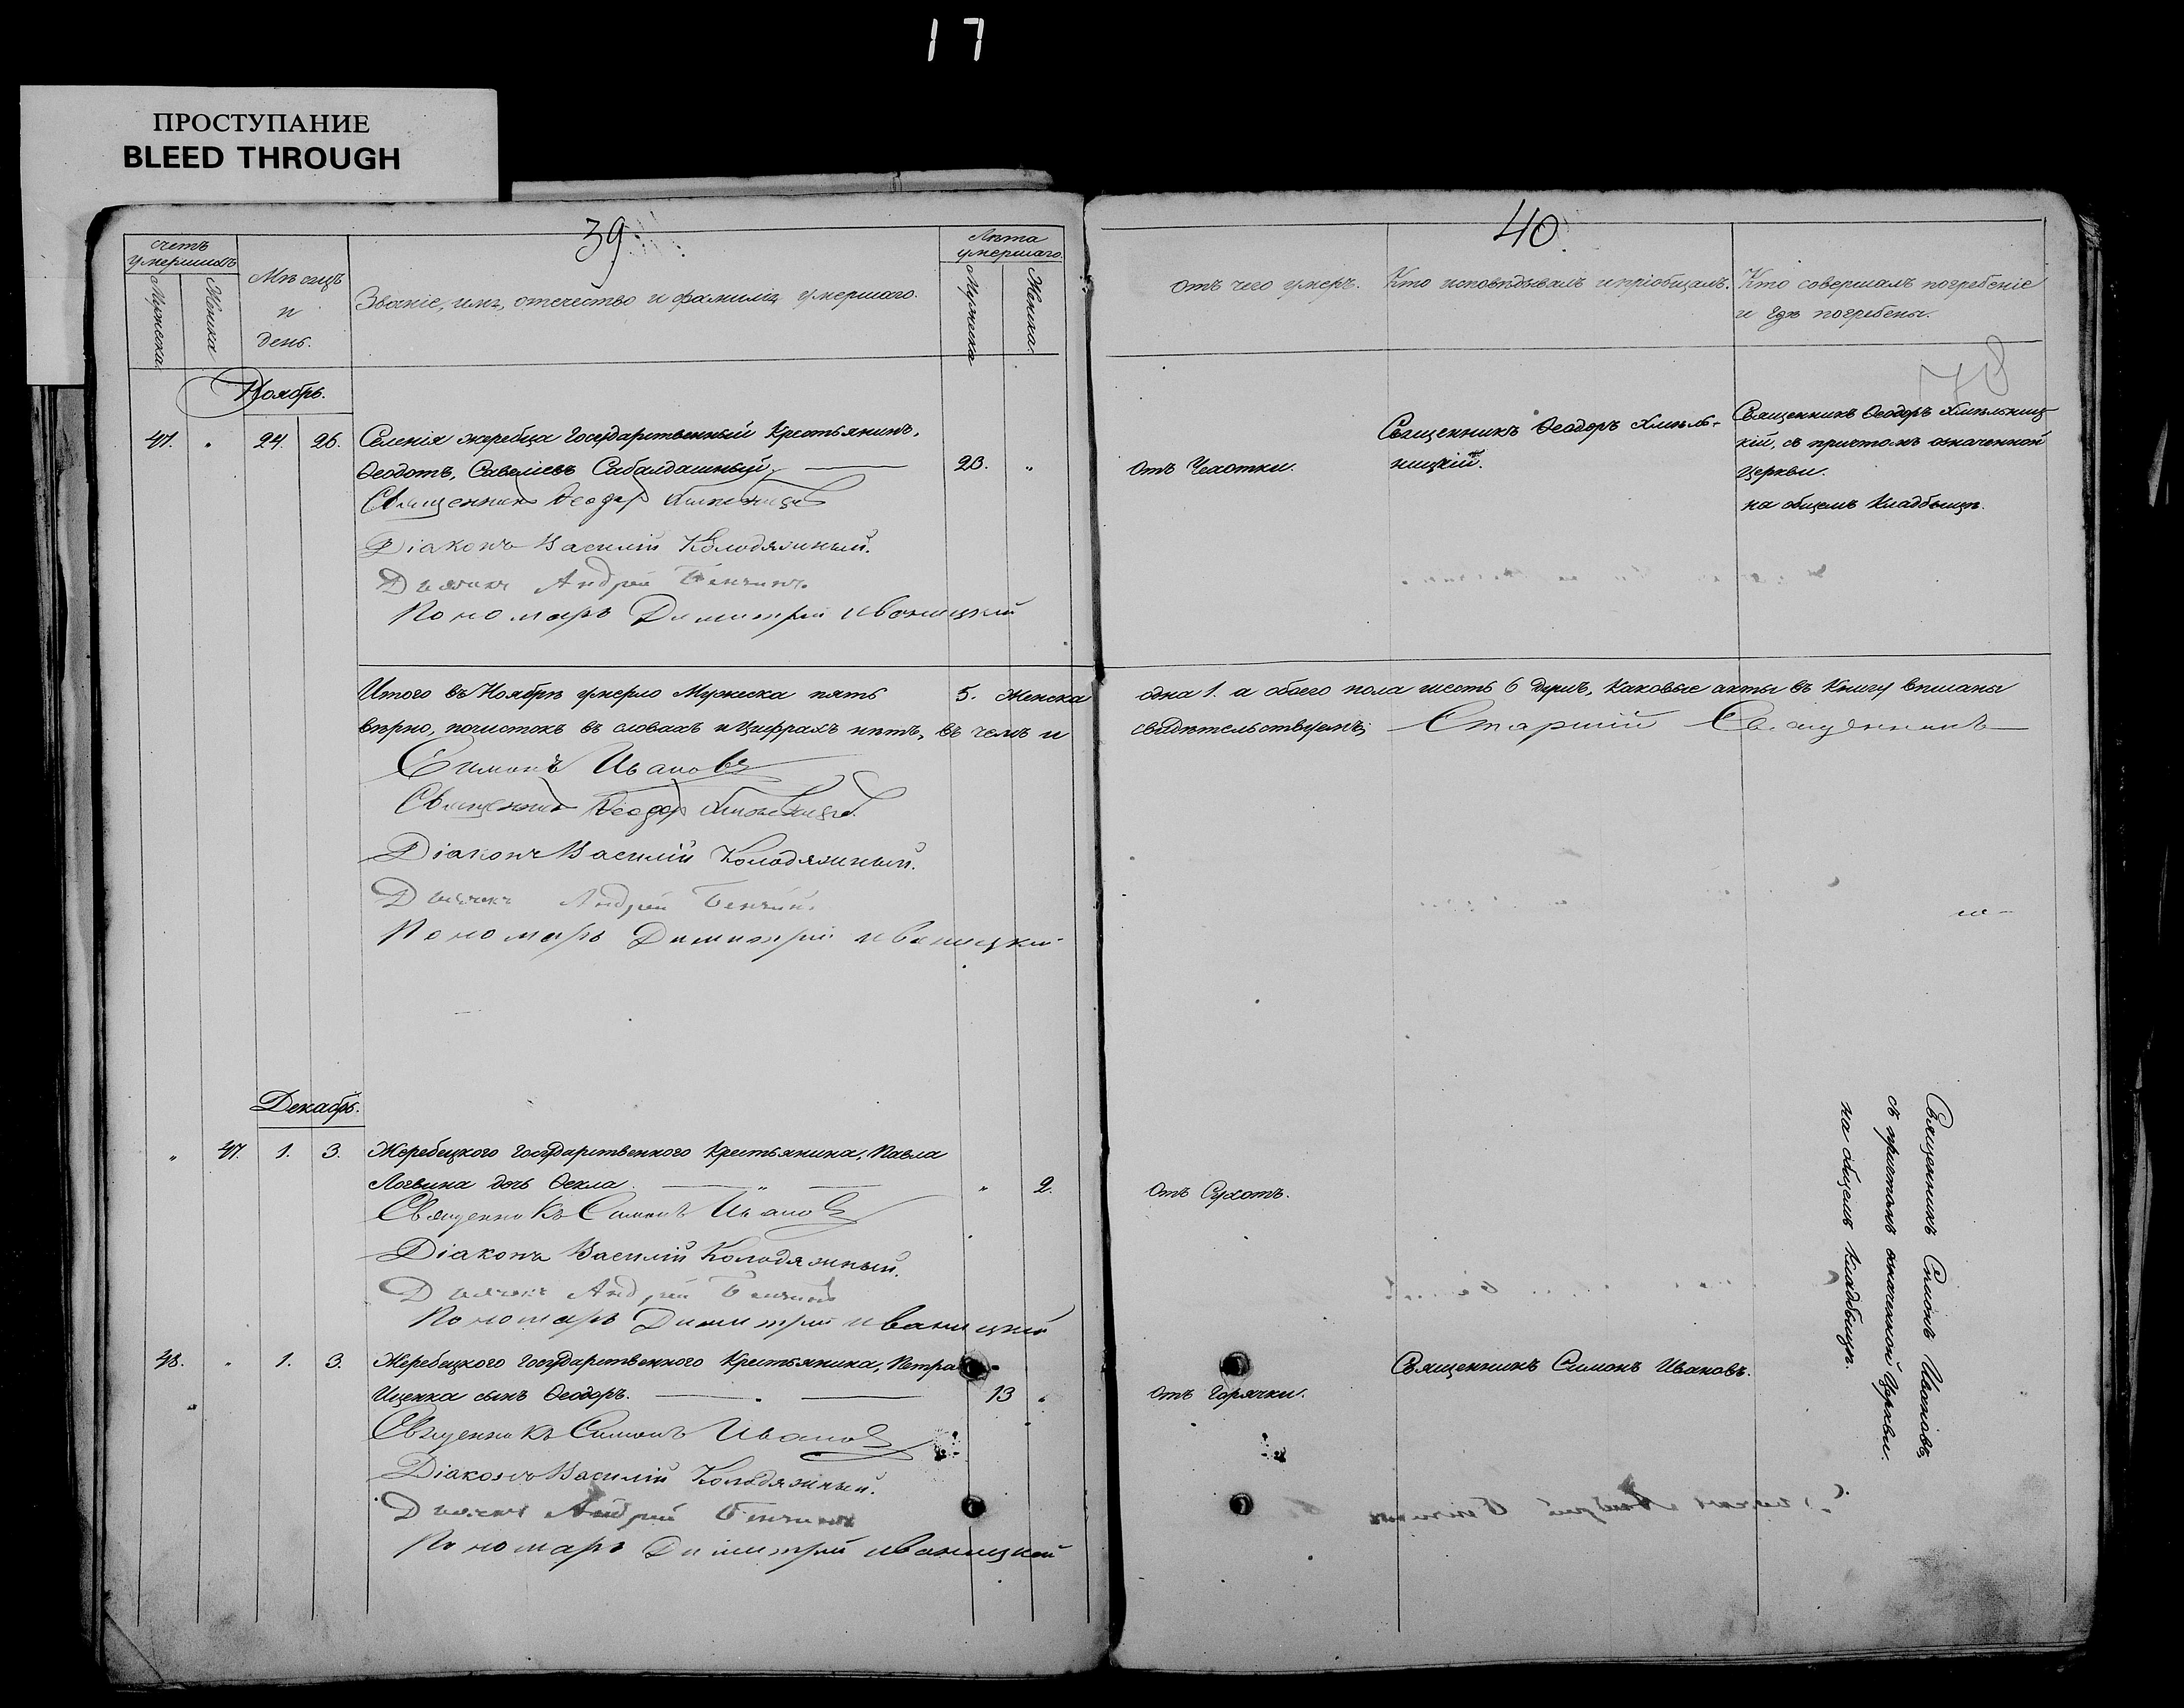 17
ПРОСТУПАНИЕ
BLEED THROUGH
39.
Счетъ
умершихъ
Мужеска.
Женска
Мѣсяцъ
и
день.
Званіе, имя, отечество и фамилія умершаго.
Лѣта
умершаго.
Мужеска
Женска.
Ноябрь.
47. „ 24. 26. Селенія жеребца Государственный Крестьянинъ,
Ѳеодотъ, Савеліевъ Сабалдашный, 23. „
Священникъ Ѳеодоръ Хмельницкій
Діаконъ Василій Колодяжный.
Дьячекъ Андрей
Пономарь Димитрій Иваницкій
Итого въ Ноябрѣ умерло Мужеска пять 5. Женска
вѣрно, почистокъ въ словахъ и Цифрахъ нѣтъ, въ чемъ и
Симонъ Ивановъ
Священникъ Ѳеодоръ Хмельницкій
Діаконъ Василій Колодяжный.
Дьячекъ Андрей
Пономарь Димитрій Иваницкій
Декабрь.
„ 47. 1. 3. Жеребецкого Государственного Крестьянина, Павла
Логвина дочь Ѳекла. „ 2.
Священникъ Симонъ Ивановъ
Діаконъ Василій Колодяжный.
Дьячекъ Андрей
Пономарь Димитрій Иваницкій
48. „ 1. 3. Жеребецкого Государственного Крестьянина, Петра
Ищенка сынъ Ѳеодоръ. 13 „
Священникъ Симонъ Ивановъ
Діаконъ Василій Колодяжный.
Дьячекъ Андрей
Пономарь Димитрій Иваницкій
40.
Отъ чего умеръ.
Кто исповѣдывалъ и пріобщалъ.
Кто совершалъ погребеніе
и гдѣ погребены.
78
Отъ Чехотки.
Священникъ Ѳеодоръ Хмѣль-
ницкій.
Священникъ Ѳеодоръ Хмѣльниц-
кій, съ причтомъ означенной
Церкви.
на общемъ Кладбищѣ.
одна 1. а обоего пола шесть 6 душъ, каковые акты въ Книгу вписаны
свидѣтельствуемъ, Старшій Священникъ
Отъ Сухотъ.
Священникъ Симонъ Ивановъ,
съ причтомъ означенной Церкви.
на общемъ Кладбищѣ.
Отъ Горячки.
Священникъ Симонъ Ивановъ.